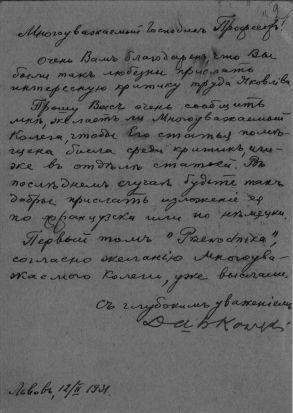 Многоуважаемый Господинъ Профессоръ!
Очень Вамъ благодаренъ, что Вы
были такъ любезны прислать
интересную критику труда Яковлива
Прошу Васъ очень сообщить
мнѣ, желаетъ ли Многоуважаемый
Колега, чтобы его статья помѣ-
щена была среди критикъ или-
же въ отдѣлѣ статей. Въ
послѣднемъ случаѣ будьте такъ
добры прислать изложеніе ея
по французски или по нѣмецки.
Первый томъ "
согласно желанію Многоува-
жаемого Колеги, уже высланъ.
Съ глубокимъ уваженіемъ
Dąbkowski
Львовъ, 12/II 1931.